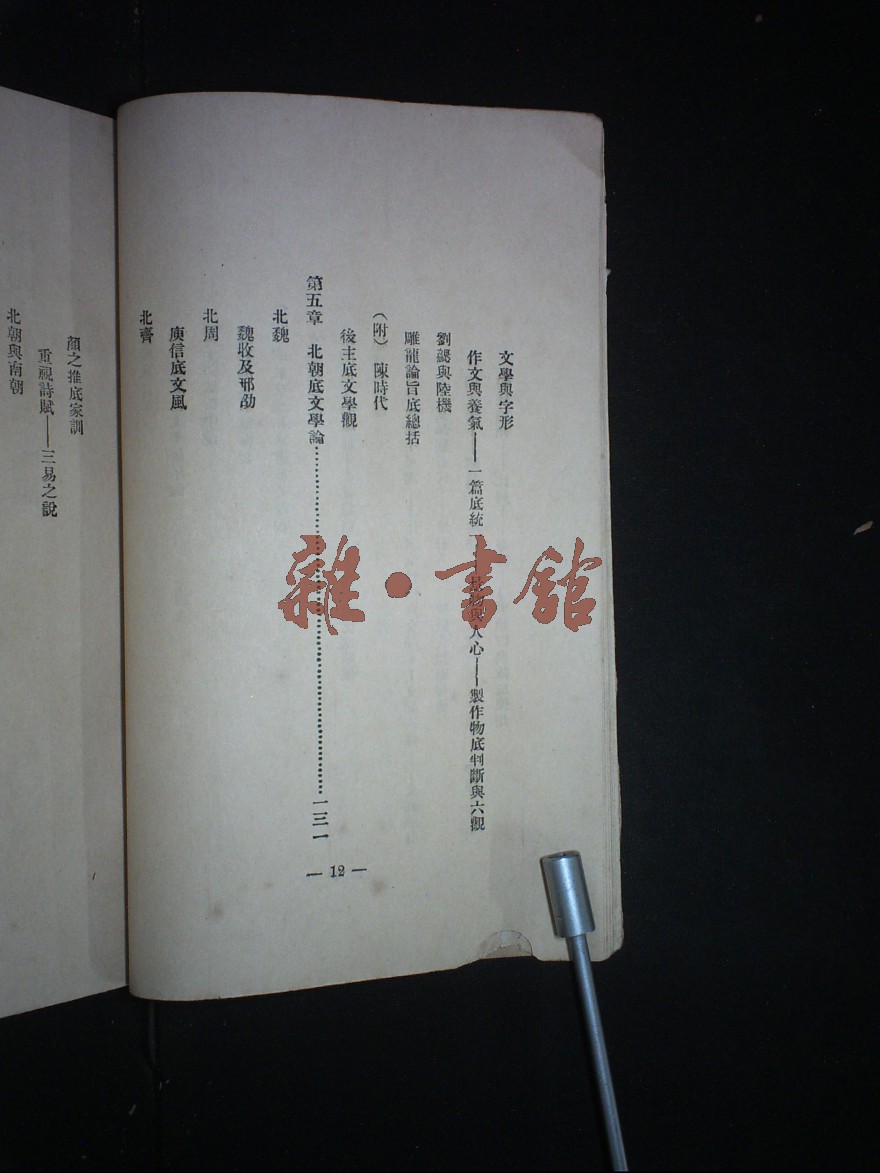 文學與字形
作文與養氣——一篇底統一 與人心——製作物底判斷與六觀
劉勰與陸機
雕龍論旨底總括
(附) 陳時代
後主底文學觀
第五章 北朝底文學論……………………………一三一
北魏
魏收及邢劭
北周
庾信底文風
北齊
— 12 —
顏之推底家訓
重視詩賦——三易之說
北朝與南朝
雜·書館